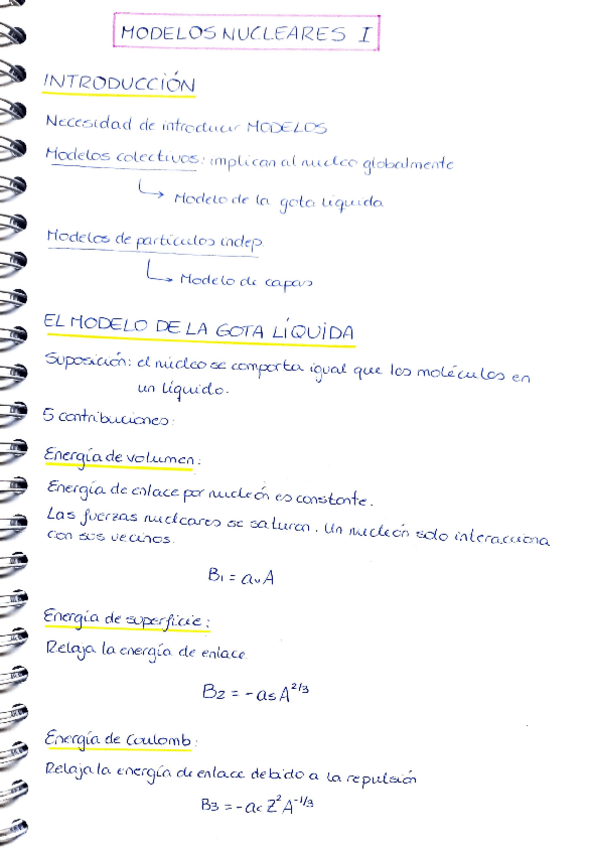 MODELOS NUCLEARES I
INTRODUCCIÓN
Necesidad de introducir MODELOS
Modelos colectivos: implican al nucleo globalmente
↳ Modelo de la gota liquida
Modelos de particulas indep
↳ Modelo de capas
EL MODELO DE LA GOTA LÍQUIDA
Suposición: el núcleo se comporta igual que las moléculas en
un líquido.
5 contribuciones:
Energía de volumen:
Energía de enlace por nucleón es constante.
Las fuerzas nucleares se saturan. Un nucleón solo interacciona
con sus vecinos.
B₁ = aᵥA
Energía de superficie:
Relaja la energía de enlace
B₂ = -aₛA^{2/3}
Energía de Coulomb:
Relaja la energía de enlace debido a la repulsión
B₃ = -a_c Z² A^{-1/3}